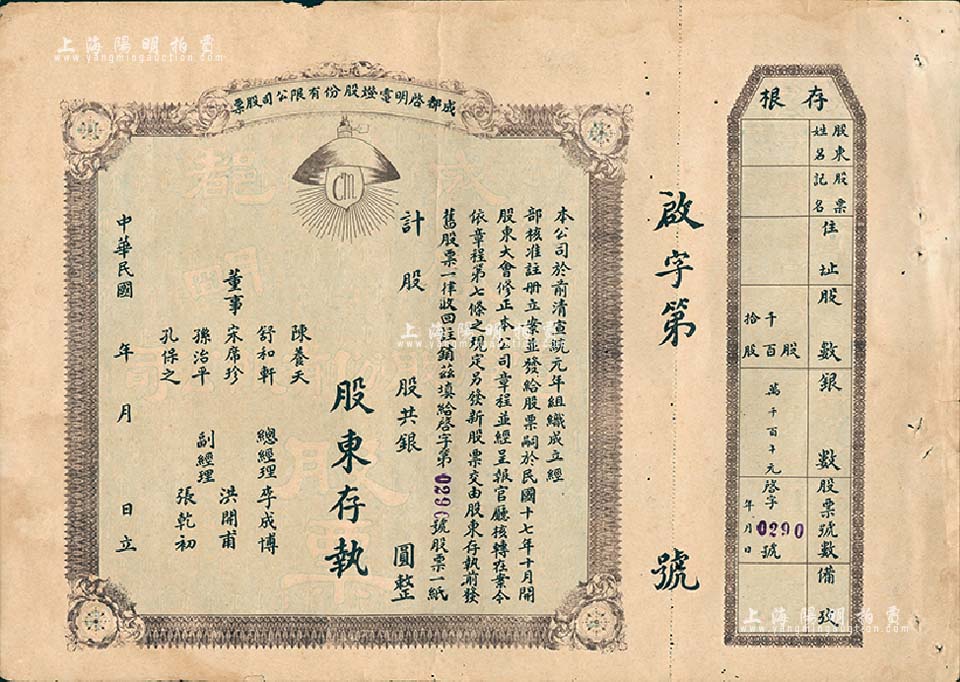 上海陽明拍賣
www.yangmingauction.com
上海陽明拍賣
www.yangmingauction.com
存根
股東姓名
股票記名
住址
股數
千百拾股
股
銀數
萬千百十元
股票號數
啓字0290號
年月日
備攷
啟字第 號
成都啓明電燈股份有限公司股票
本公司於前清宣統元年組織成立經
部核准註册立案並發給股票嗣於民國十七年十月開
股東大會修正本公司章程並經呈報官廳核轉在案今
依章程第七條之規定另發新股票交由股東存執前發
舊股票一律收回註銷茲填給啓字第0290號股票一紙
計 股 股共銀 圓整
股東存執
董事
陳養天
舒和軒
宋席珍
孫治平
孔保之
總經理 李成博
副經理
洪開甫
張乾初
中華民國 年 月 日立
上海陽明拍賣
www.yangmingauction.com
上海陽明拍賣
www.yangmingauction.com
上海陽明拍賣
www.yangmingauction.com